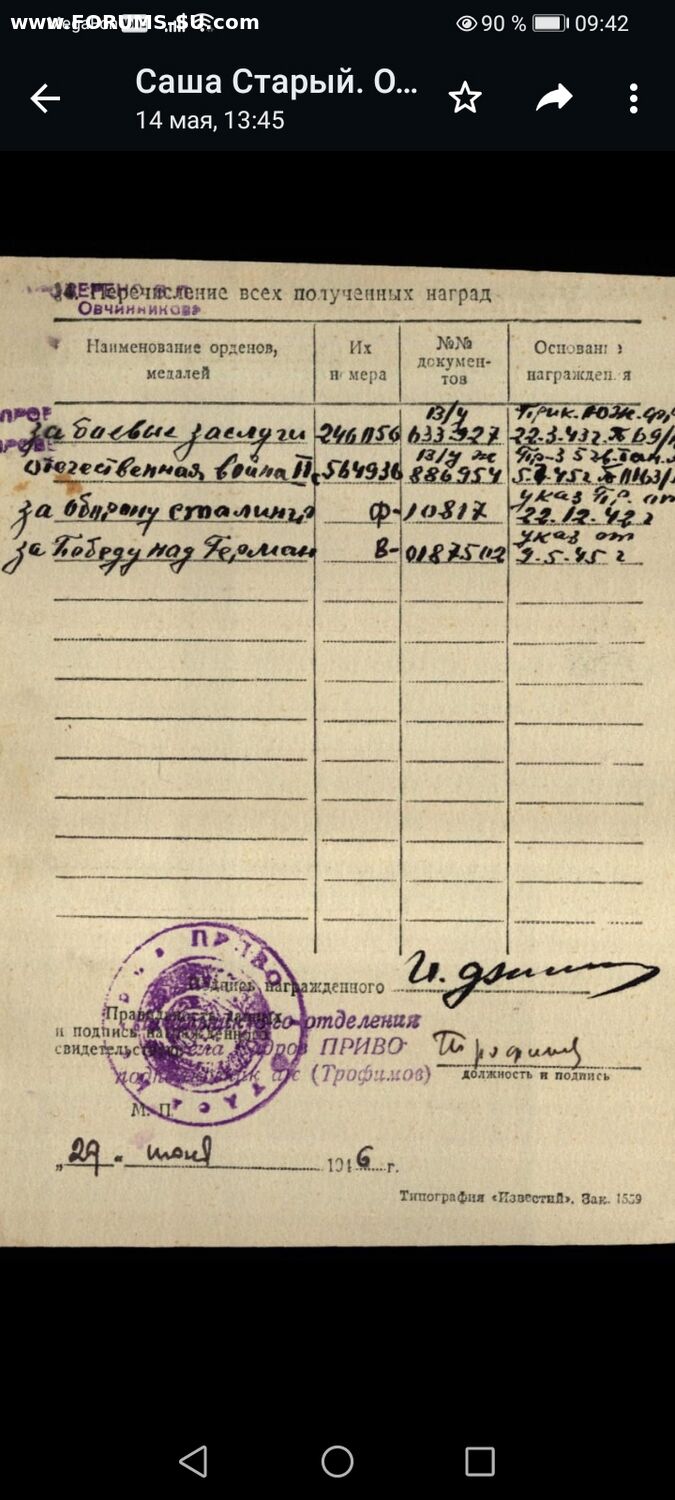 www.FORUMS-SU.com
90 %
09:42
Саша Старый. О...
14 мая, 13:45
Овчинникова
Перечисление всех полученных наград
Наименование орденов, медалей
Их номера
№№ документов
Основания награждения
за боевые заслуги 246056 В/у 633927 22.3.43г.
Отечественная война II 564936 В/у 886954
за оборону сталингр Ф-10817 указ от 22.12.42 г
за Победу над Герман В-0187502 указ от 9.5.45 г
ПРИВО
Подпись награжденного
Правильность данных
и подпись награжденного
свидетельствую
отделения
ПРИВО
(Трофимов)
Трофимов
должность и подпись
М. П.
„29" июня 1946 г.
Типография «Известий». Зак. 1559